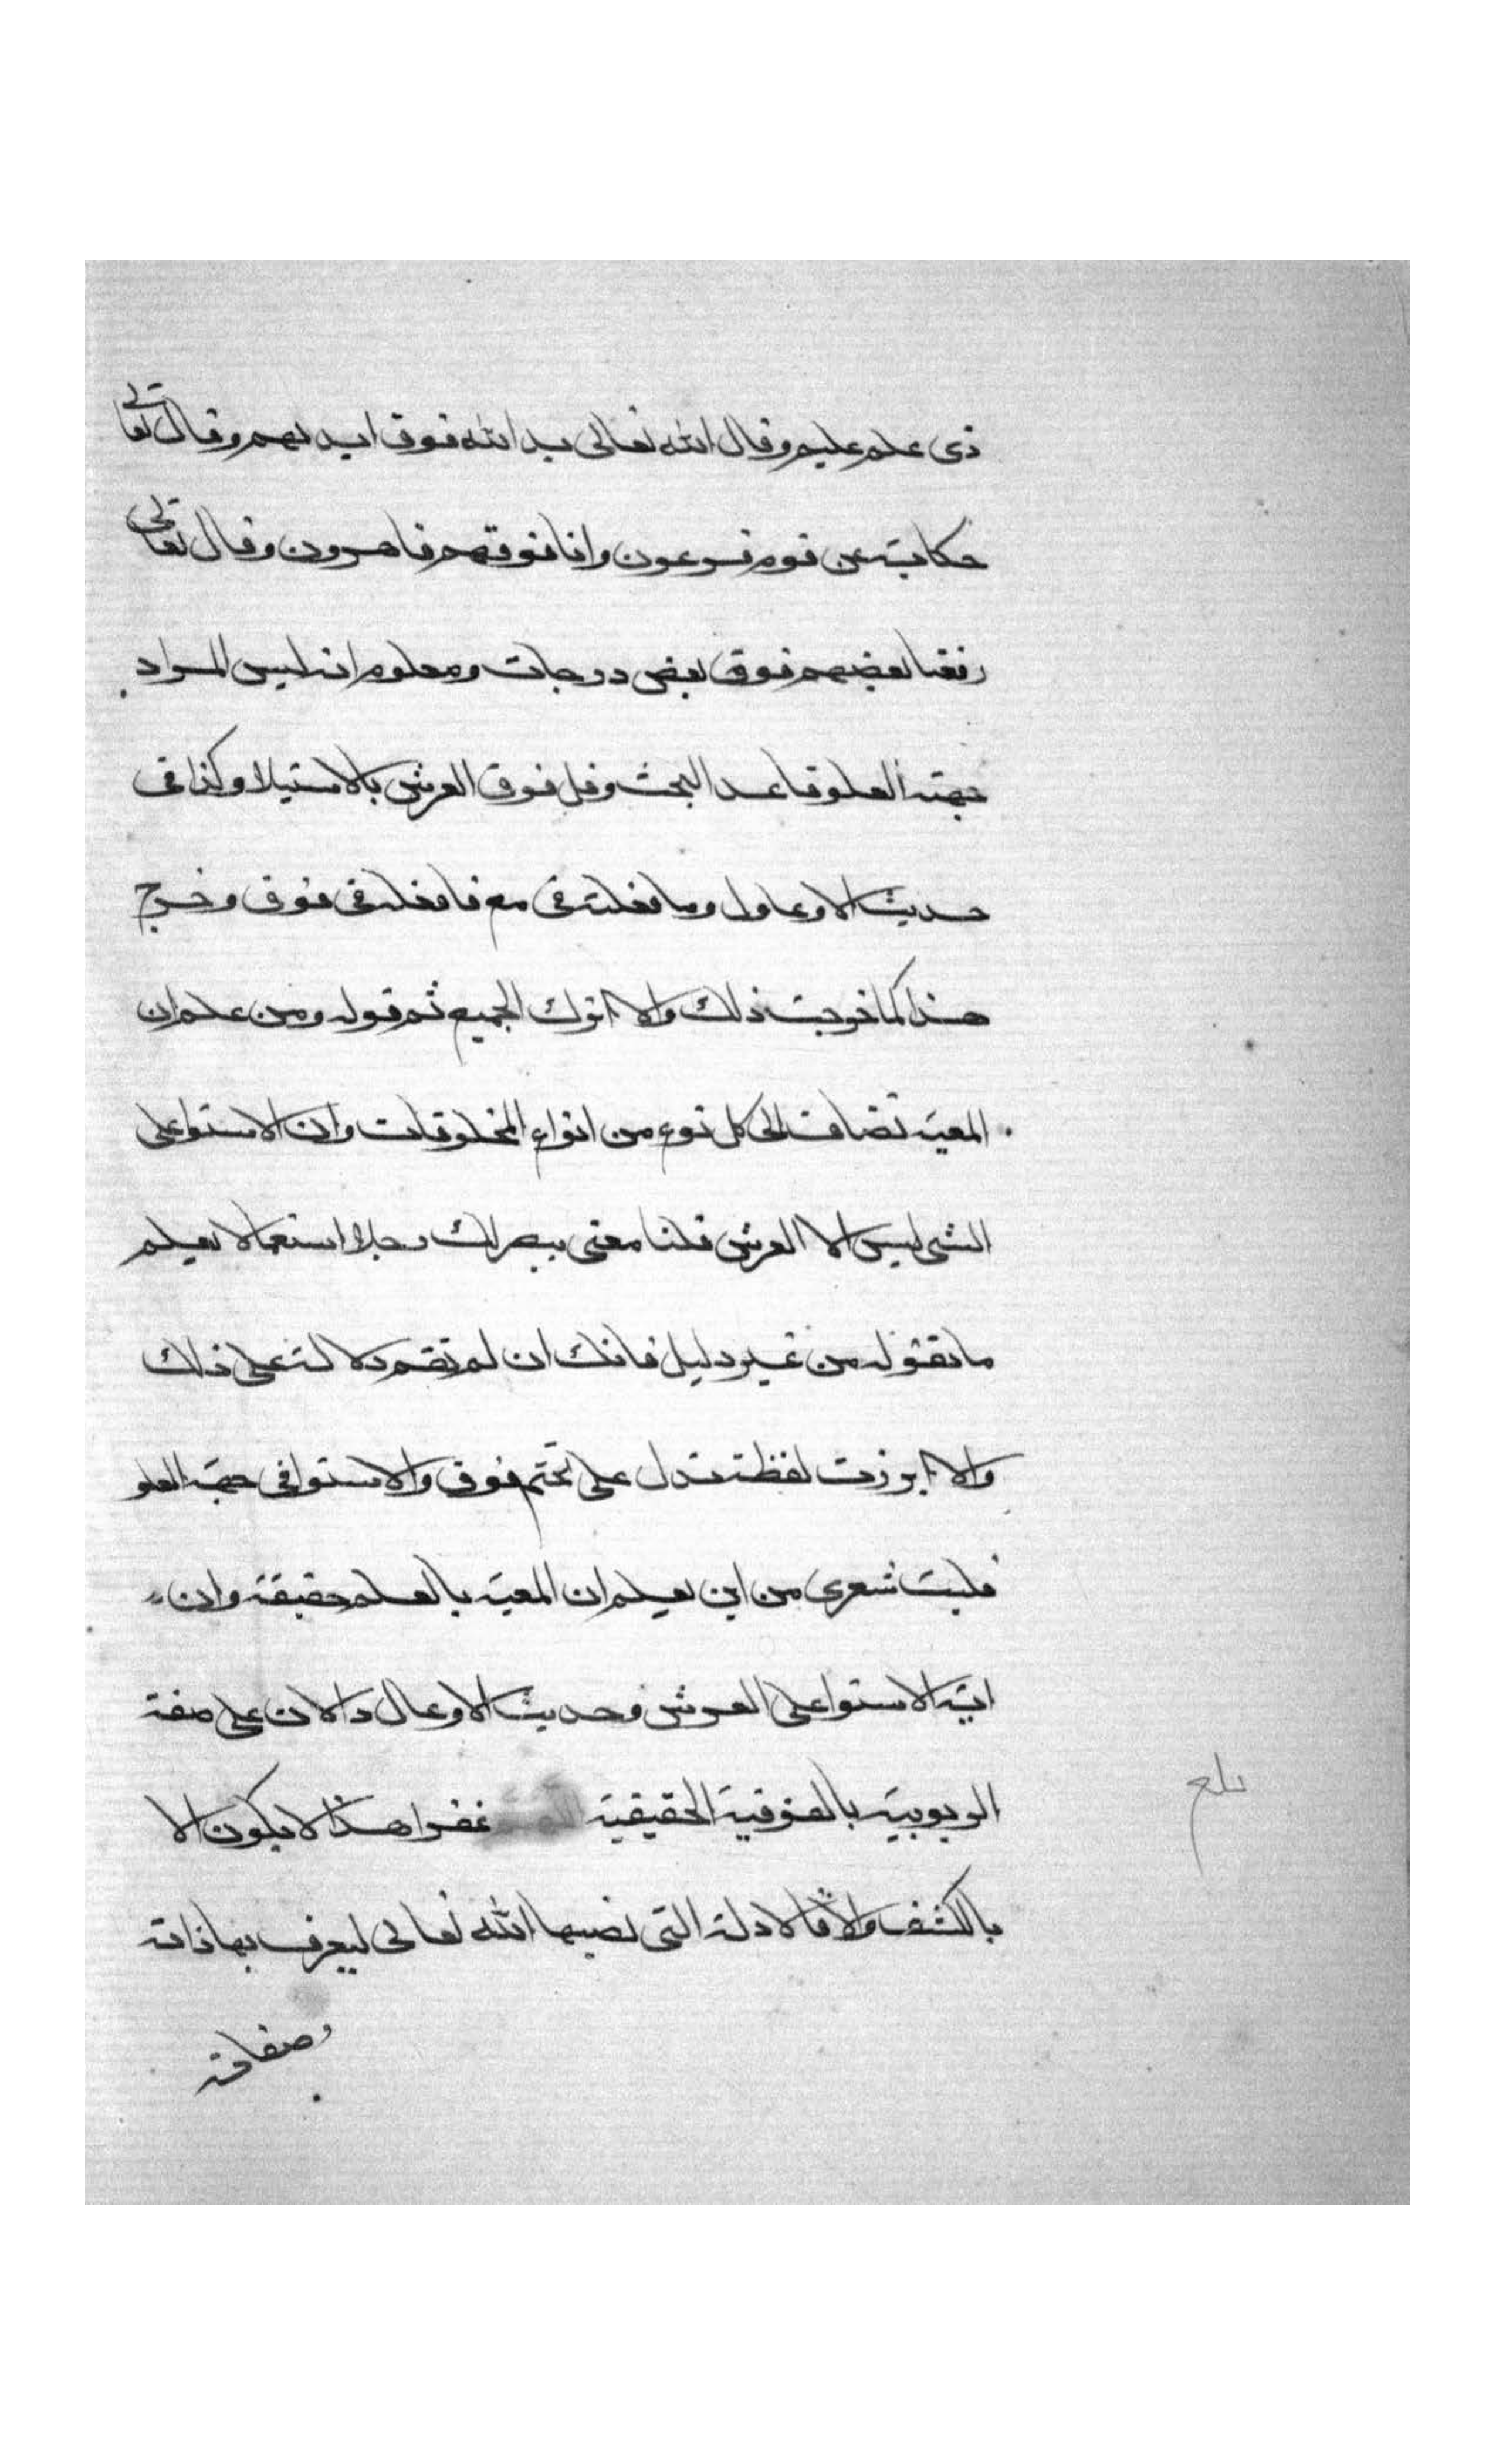 ذى علم عليم وقال الله تعالى يد الله فوق ايديهم وقال تعالى
حكاية عن قوم فرعون وانا فوقهم قاهرون وقال تعالى
رفعنا بعضهم فوق بعض درجات ومعلوم انه ليس المراد
جهة العلو فاعد البحث وقل فوق العرش بالاستيلا وكذا فى
حديث الاوعال وما فعلته فى مع فافعله فى فوق وخرج
هذا كما خرجت ذلك والا اترك الجميع ثم قوله ومن علم ان
المعية تضاف الى كل نوع من انواع المخلوقات وان الاستوا على
الشى ليس الا العرش قلنا معنى يبصرلك رجلا استعمالا يعلم
ما تقوله من غير دليل فانك ان لم تقم دلالة على ذلك
والا ابرزت لفظة تدل على تحتم فوق والاستوا فى جهة العلو
فليت شعرى من اين يعلم ان المعية بالعلم حقيقة وان
اية الاستوا على العرش وحديث الاوعال دالان على صفة
الربوبية بالفوقية الحقيقية غفرا هذا لا يكون الا
بالكشف والا فالادلة التى نصبها الله تعالى ليعرف بها ذاته
وصفاته
بلغ